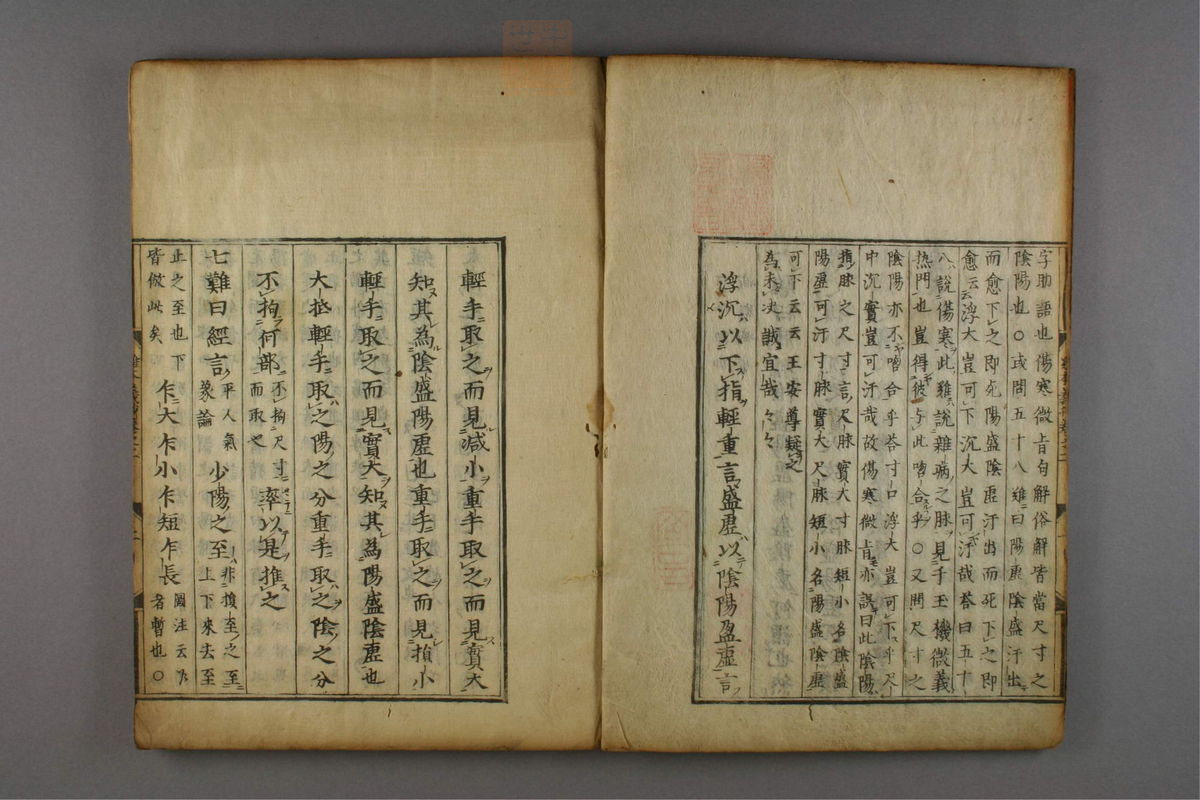 字助語也傷寒微旨句解俗解皆當尺寸之
陰陽也○或問五十八難曰陽虛陰盛汗出
而愈下之即死陽盛陰虛汗出而死下之即
愈云云浮大豈可下沉大豈可汗哉荅曰五十
八說傷寒此難說雜病之脉見于玉機微義
熱門也豈得彼與此㗭合乎○又問尺寸之
陰陽亦不㗭合乎荅寸口浮大豈可下乎尺
中沉實豈可汗哉故傷寒微旨亦誤曰此陰陽
指脉之尺寸言尺脉實大寸脉短小名陰盛
陽虛可汗寸脉實大尺脉短小名陽盛陰虛
可下云云王安道疑之
為未決誠宜哉々々
浮沉以下指輕重言盛虛以陰陽盈虛言
輕手取之而見減小重手取之而見實大
知其為陰盛陽虛也重手取之而見損小
輕手取之而見實大知其為陽盛陰虛也
大抵輕手取之陽之分重手取之陰之分
不拘何部不拘尺寸而取也率以是推之
七難曰經言平人氣象論少陽之至非換至之至上下來去至
止之至也下皆倣此矣乍大乍小乍短乍長圖注云乍者暫也○